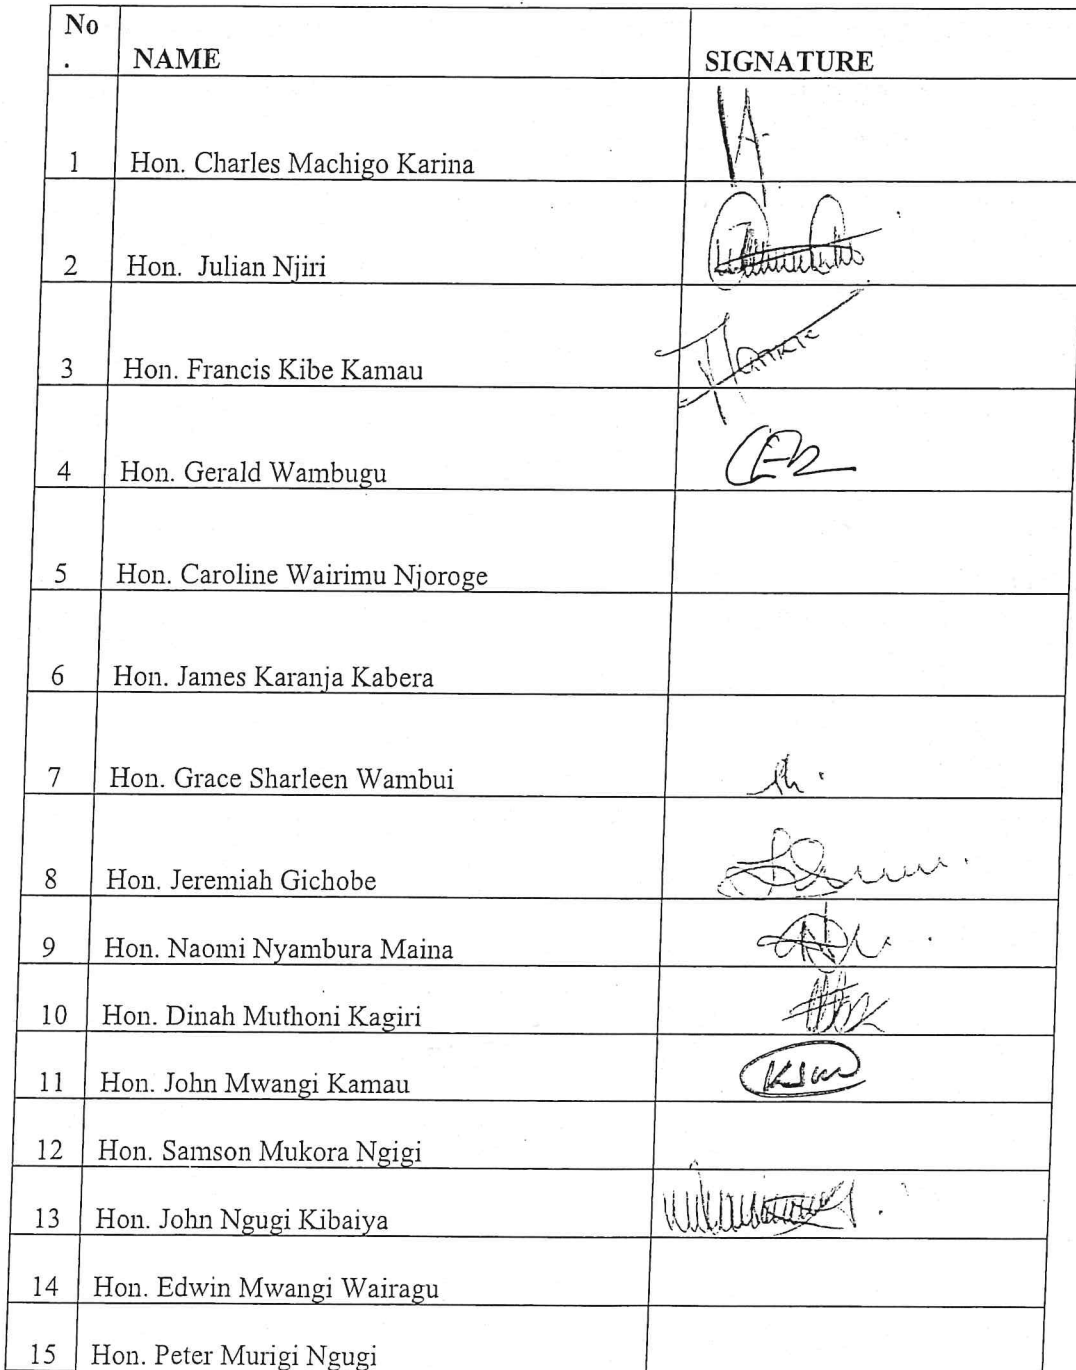 No
. NAME SIGNATURE
1 Hon. Charles Machigo Karina
2 Hon. Julian Njiri
3 Hon. Francis Kibe Kamau
4 Hon. Gerald Wambugu
5 Hon. Caroline Wairimu Njoroge
6 Hon. James Karanja Kabera
7 Hon. Grace Sharleen Wambui
8 Hon. Jeremiah Gichobe
9 Hon. Naomi Nyambura Maina
10 Hon. Dinah Muthoni Kagiri
11 Hon. John Mwangi Kamau
12 Hon. Samson Mukora Ngigi
13 Hon. John Ngugi Kibaiya
14 Hon. Edwin Mwangi Wairagu
15 Hon. Peter Murigi Ngugi